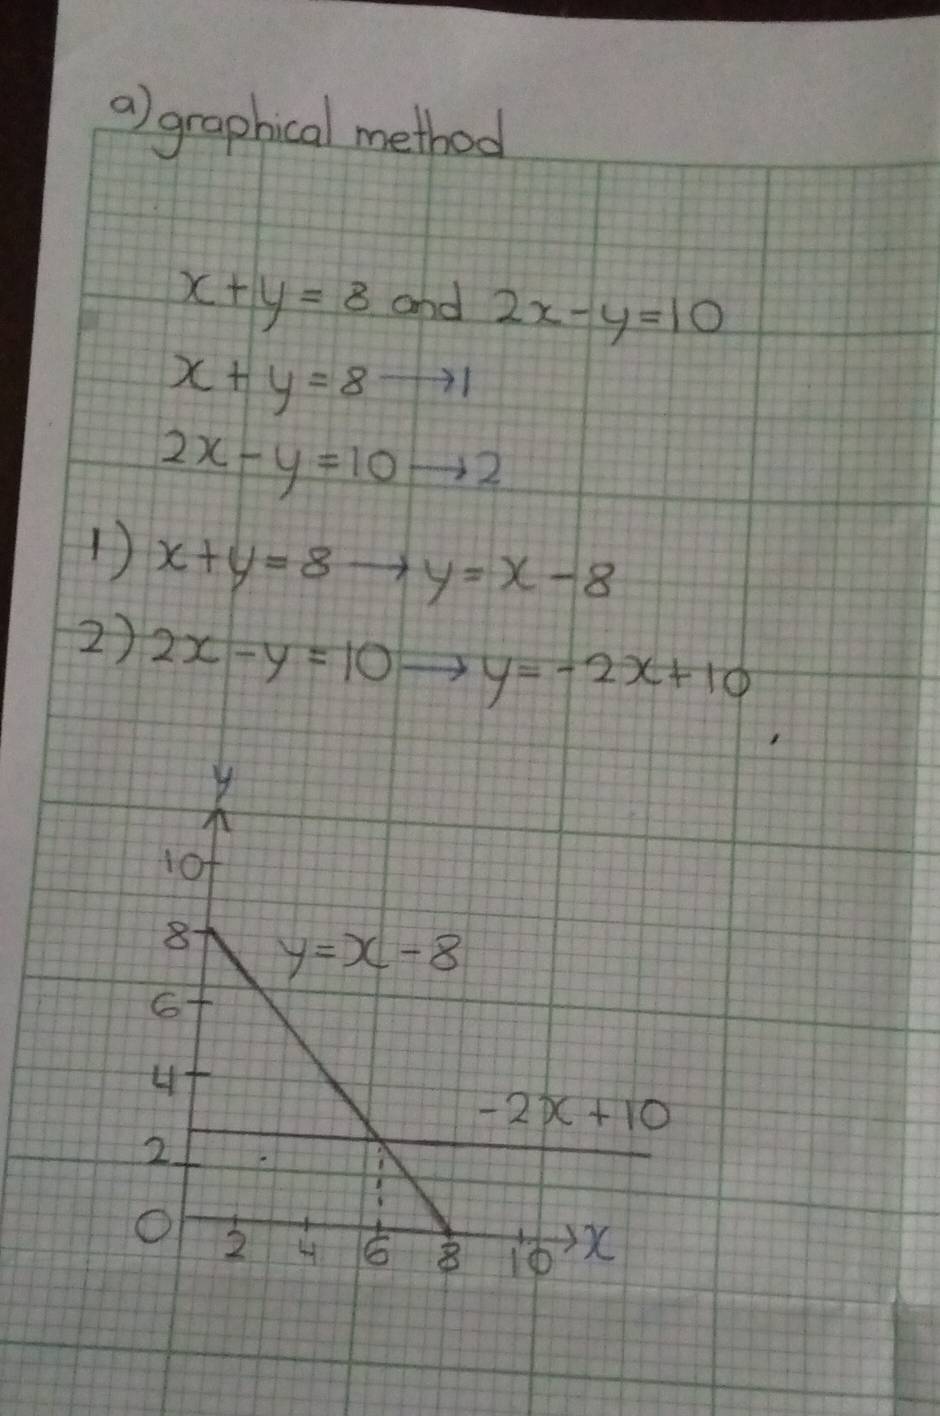 a) graphical method
x + y = 8 and 2x - y = 10
x + y = 8 → 1
2x - y = 10 → 2
1) x + y = 8 → y = x - 8
2) 2x - y = 10 → y = -2x + 10
y
10
8
y = x - 8
6
4
-2x + 10
2
0 2 4 6 8 10 x